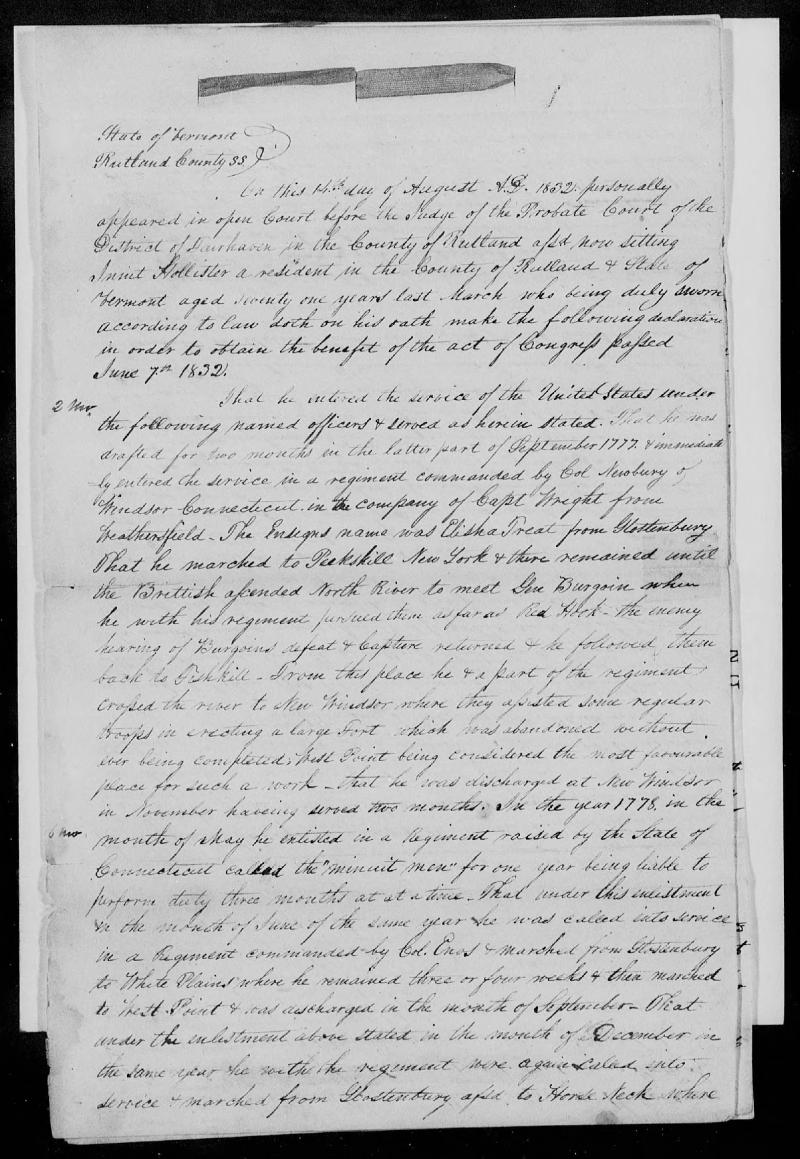 State of Vermont
Rutland County SS
On this 14th day of August A.D. 1832. personally
appeared in open Court before the Judge of the Probate Court of the
District of Fairhaven in the County of Rutland afsd, now sitting
Innit Hollister a resident in the County of Rutland & State of
Vermont aged Seventy one years last March who being duly sworn
according to law doth on his oath make the following declaration
in order to obtain the benefit of the act of Congress passed
June 7th 1832.
2 Mo.
That he entered the service of the United States under
the following named officers & served as herein stated. That he was
drafted for two months in the latter part of September 1777. & immediate
ly entered the service in a regiment commanded by Col Newbury of
Windsor Connecticut in the company of Capt Wright from
Weathersfield - The Ensigns name was Elisha Treat from Glostenbury
That he marched to Peekskill New York & there remained until
the Brittish ascended North River to meet Gen Burgoin when
he with his regiment pursued them as far as Red Hook - the enemy
hearing of Burgoins defeat & Capture returned & he followed them
back to Fishkill - From this place he & a part of the regiment
crossed the river to New Windsor where they assisted some regular
troops in erecting a large Fort which was abandoned without
ever being completed; West Point being considered the most favourable
place for such a work - that he was discharged at New Windsor
in November haveing served two months. In the year 1778, in the
6 mo
month of May he enlisted in a Regiment raised by the State of
Connecticut called the "minuit men" for one year being liable to
perform duty three months at at a time - That under this enlistment
in the month of June of the same year he was called into service
in a Regiment commanded by Col. Enos & marched from Glostenbury
to White Plains where he remained three or four weeks & then marched
to West Point & was discharged in the month of September - That
under the enlestment above stated in the month of December in
the same year he with the regiment were again caled into
service & marched from Glostenbury afsd. to Horse Neck where